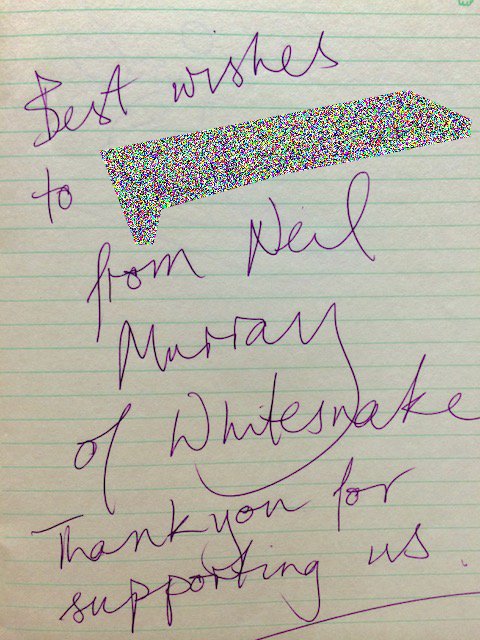 Best wishes
to
from Neil
Murray
of Whitesnake
Thankyou for
supporting us.